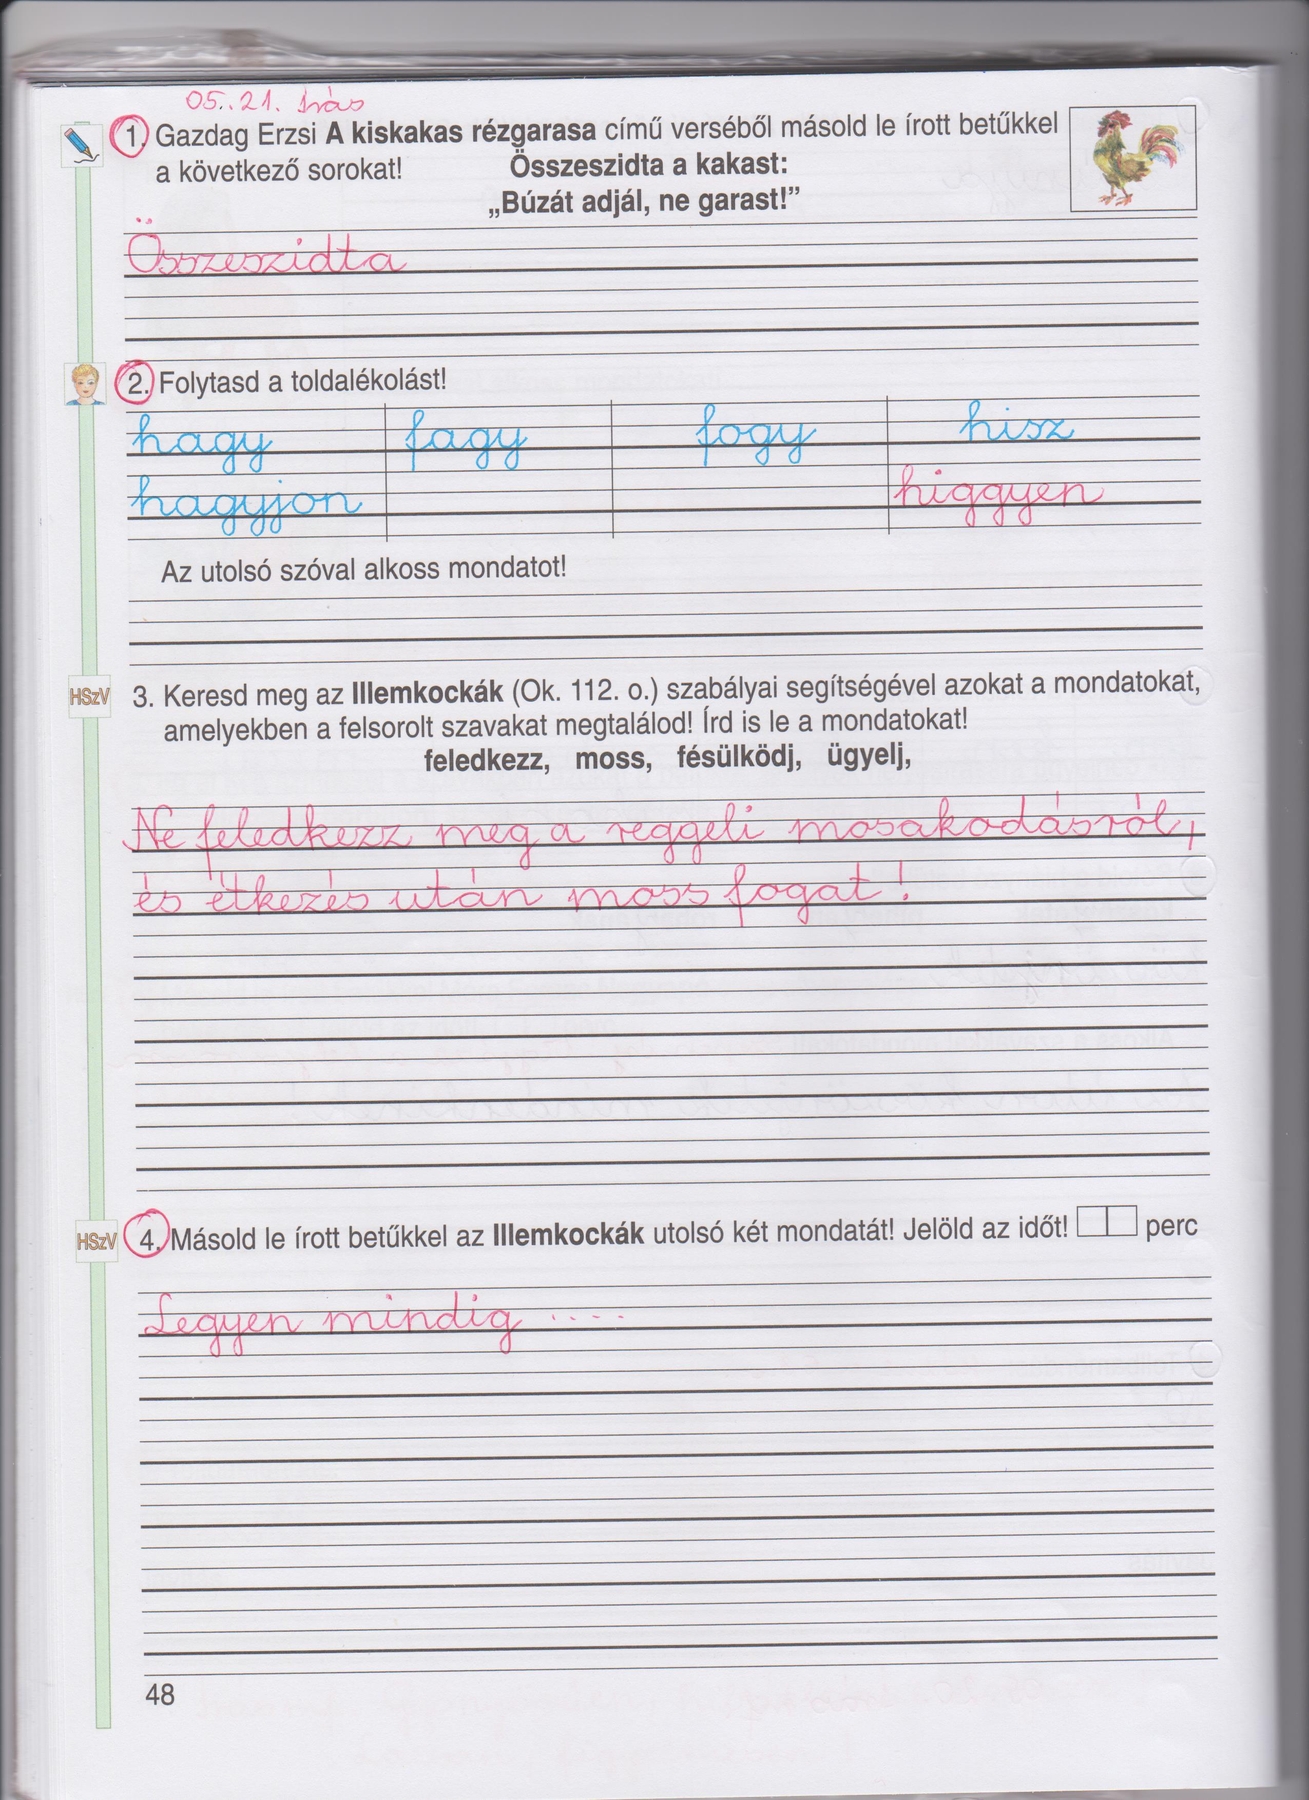 05. 21. Írás
1. Gazdag Erzsi A kiskakas rézgarasa című verséből másold le írott betűkkel
a következő sorokat! Összeszidta a kakast:
„Búzát adjál, ne garast!”
Összeszidta
2. Folytasd a toldalékolást!
hagy fagy fogy hisz
hagyjon higgyen
Az utolsó szóval alkoss mondatot!
HSzV 3. Keresd meg az Illemkockák (Ok. 112. o.) szabályai segítségével azokat a mondatokat,
amelyekben a felsorolt szavakat megtalálod! Írd is le a mondatokat!
feledkezz, moss, fésülködj, ügyelj,
Ne feledkezz meg a reggeli mosakodásról,
és étkezés után moss fogat!
HSzV 4. Másold le írott betűkkel az Illemkockák utolsó két mondatát! Jelöld az időt! perc
Legyen mindig ....
48